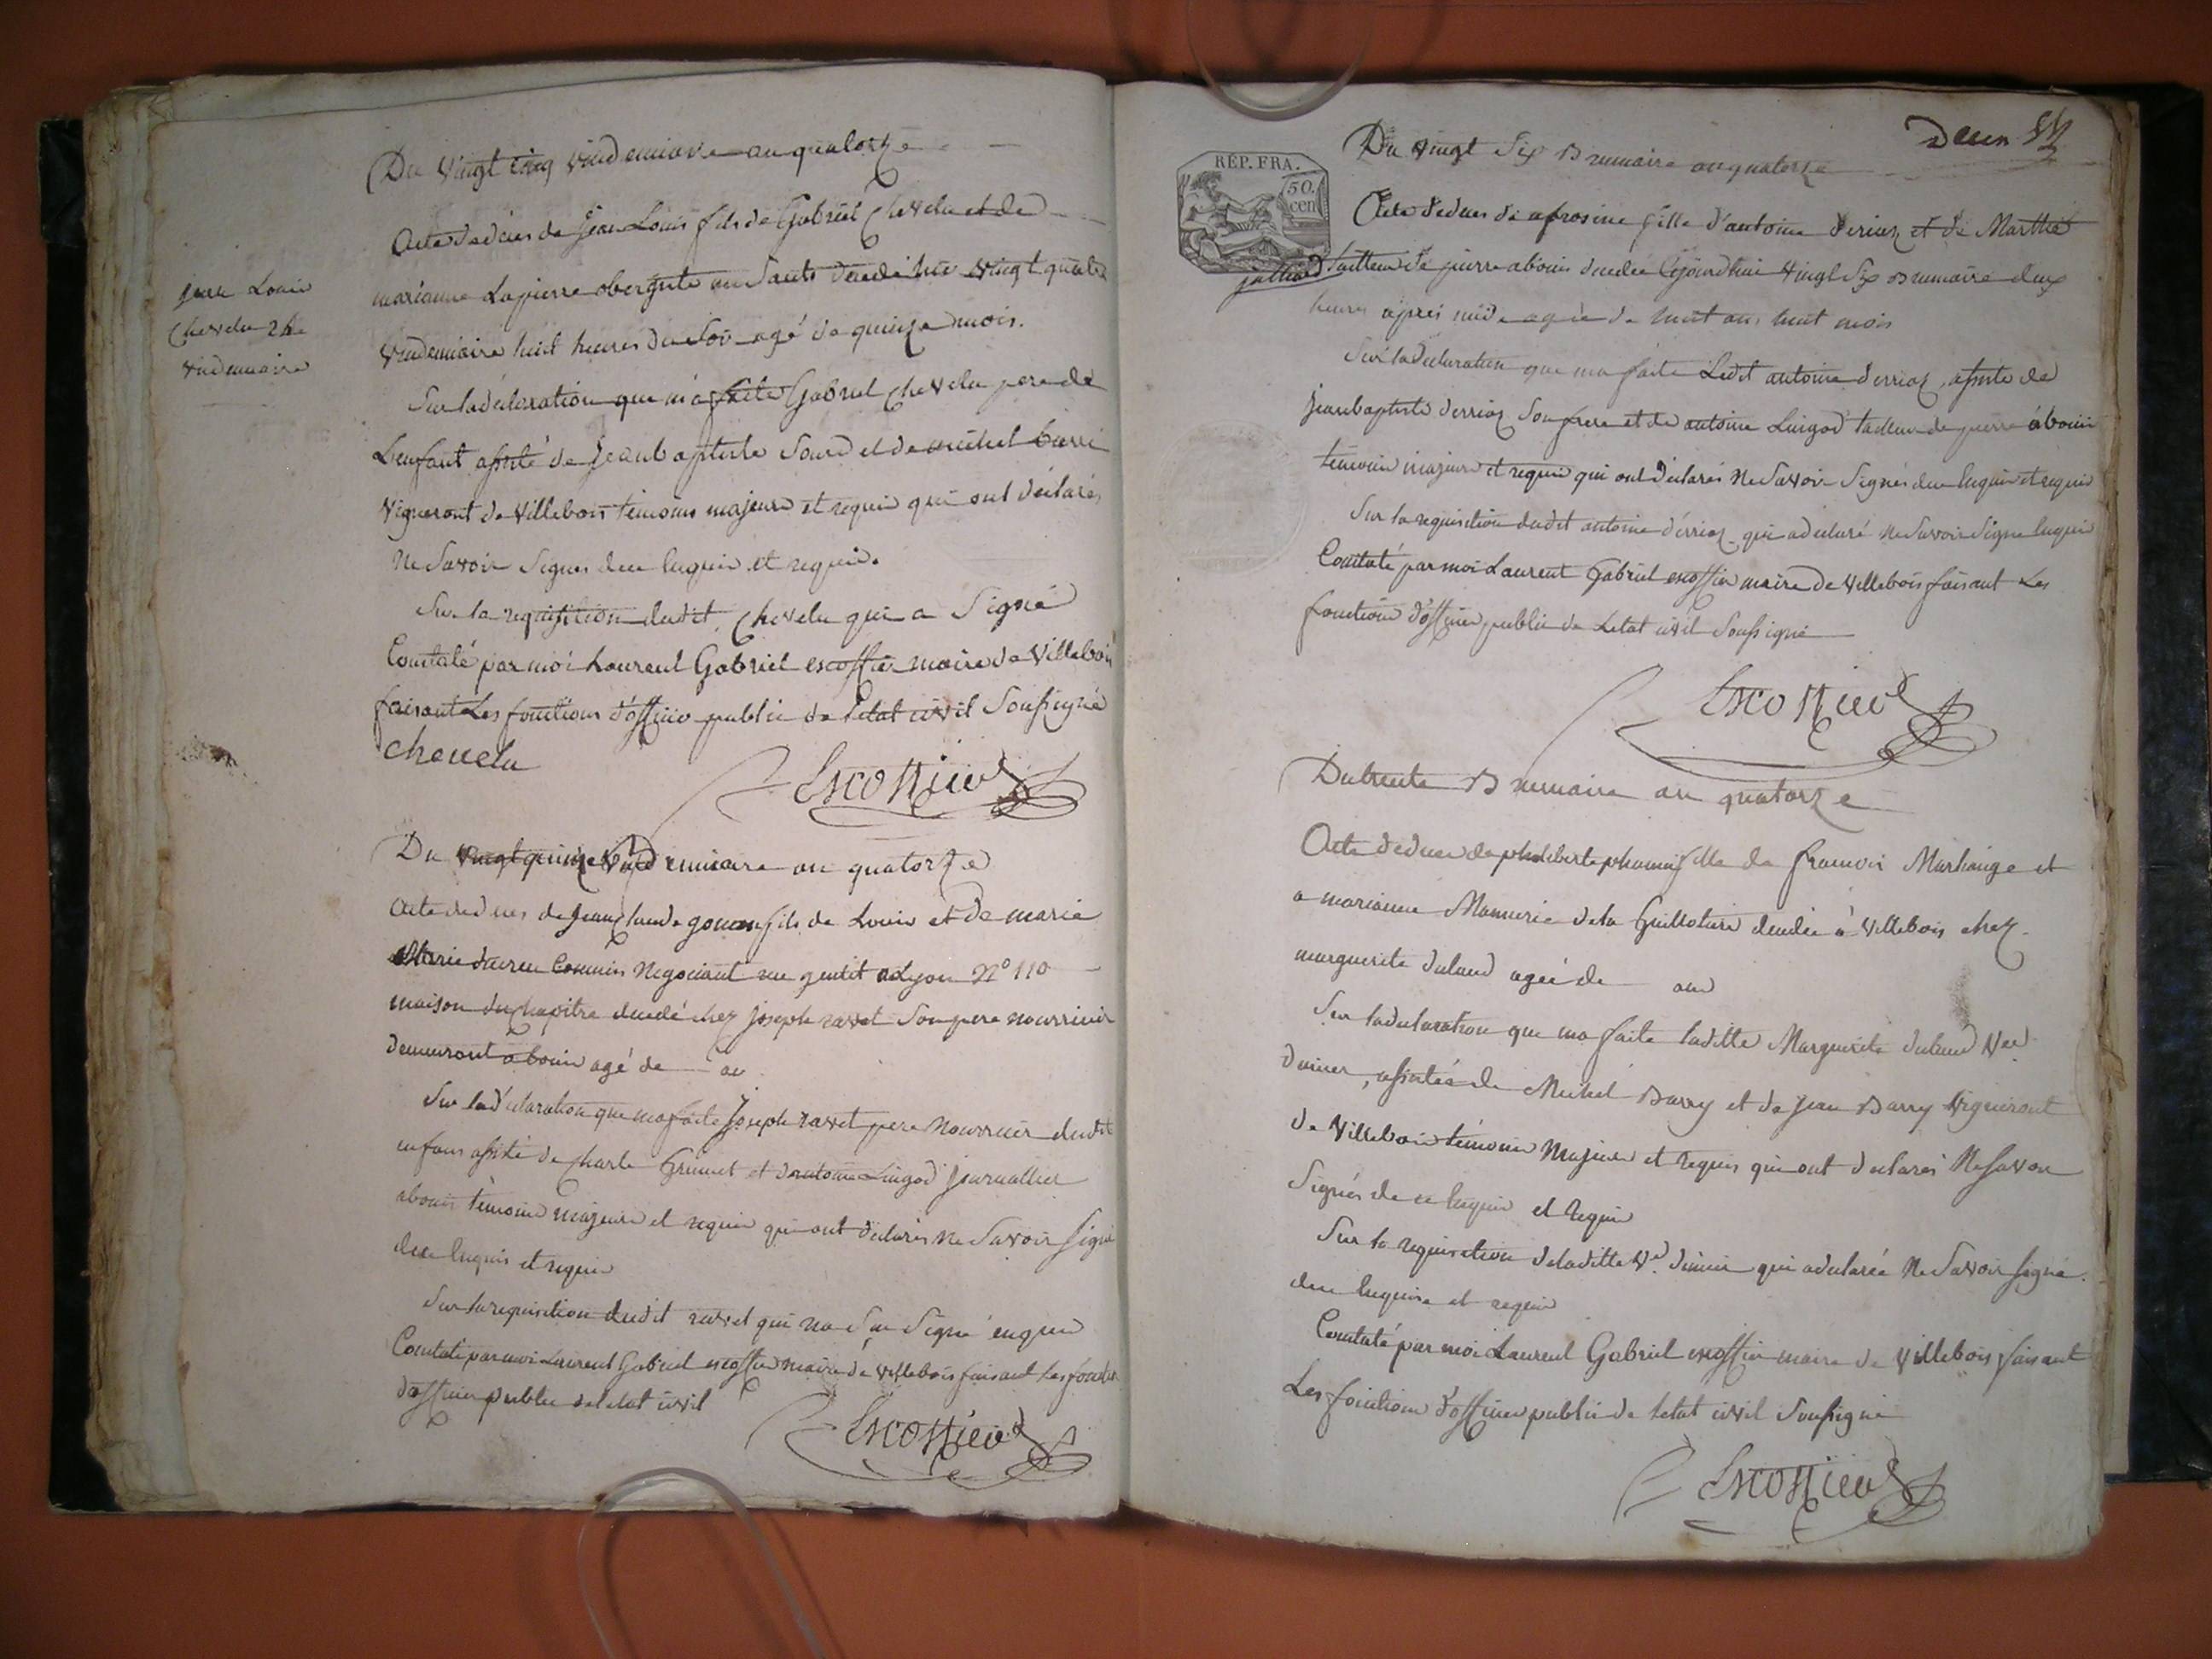 jean Louis
Chevelu 24
vindemiaire
Du vingt cinq vindemiaire an quatorze
Acte de déces de Jean Louis fils de Gabriel Chevelu et de
marianne Lapierre obergiste au Sault décédé hier vingt quatre
vindemiaire huit heures du Soir agé de quinze mois.
Sur la déclaration que m'a faite Gabriel Chevelu pere de
L'enfant assisté de Jean baptiste Sourd et de michel barri
vigneront de villebois témoins majeurs et requis qui ont déclarés
ne Savoir Signés de ce enquis et requis.
Sur la requisition dudit Chevelu qui a Signé
Constaté par moi Laurent Gabriel escoffier maire de villebois
faisant Les fonctions d'officier public de l'etat civil Soussigné
chevelu
Escoffier
Du vindemiaire an quatorze
Acte de deces de Jean Claude fils de Louis et de marie
Commis Negociant rue gentit a Lyon N° 110
maison du chapitre decedé chez Joseph ravet Son pere nourricier
demeurant a bouis agé de an
Sur la déclaration que ma faite Joseph ravet pere Nourricier dudit
enfans assisté de Charle Grumet et d'antoine Lingod journallier
abouis témoins majeurs et requis qui ont déclarés ne Savoir Signé
de ce enquis et requis
Sur la requisition dudit ravet qui na Sçu Signé enquis
Constaté par moi Laurent Gabriel escoffier maire de villebois faisant les fonctions
d'officier public de letat civil
Escoffier
RÉP. FRA.
50.
cen
Du vingt Six Brumaire an quatorze
Acte de deces de afrosine fille d'antoine derriaz et de Marthe
juilliard tailleur de pierre abouis decedée Cejourdhui vingt Six Brumaire deux
heures apres midi agée de huit ans huit mois
Sur la declaration que ma faite Ledit antoine derriaz, assisté de
jean baptiste derriaz Son frere et de antoine Lingod tailleur de pierre á bouis
témoins majeurs et requis qui ont déclarés Ne Savoir Signés de ce enquis et requis
Sur la requisition dudit antoine derriaz qui a declaré ne Savoir Signe enquis
Constaté par moi Laurent Gabriel escoffier maire de villebois faisant Les
fonctions d'officier public de Letat civil Soussigné
Escoffier
Du trente Brumaire an quatorze
Acte de deces de philiberte fille de francois Marhange et
a marianne de la Guillotiere decedée à villebois chez
marguerite dulaud agée de ans
Sur la declaration que ma faite laditte Marguerite dulaud Vve
assistée de Michel Barry et de Jean Barry vigneront
de villebois témoins Majeurs et requis qui ont declarés Ne Savoir
Signés de ce enquis et requis
Sur la requisition de laditte Ve. qui a declarée Ne Savoir Signé
de ce enquise et requis
Constaté par moi Laurent Gabriel escoffier maire de villebois faisant
Les fonctions d'officier public de letat civil Soussigné
Escoffier